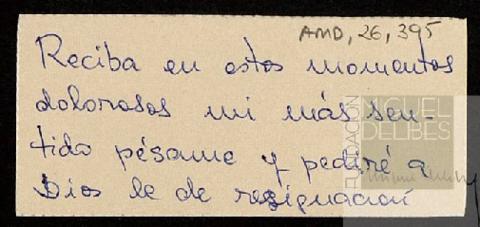 AMD, 26, 395
Reciba en estos momentos
dolorosos mi más sen-
tido pésame y pediré a
Dios le de resignación
FUNDACIÓN
MIGUEL
DELIBES